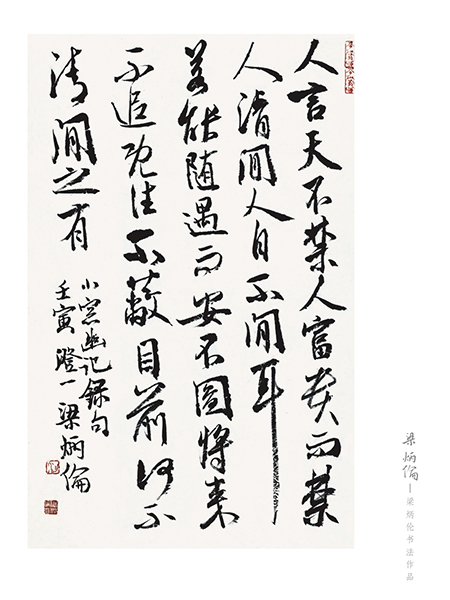 人言天不禁人富贵而禁
人清閒人自不閒耳
若能随遇而安不图将来
不追既往不蔽目前何不
清閒之有
小窗幽记録句
壬寅 澄一 梁炳倫
梁炳倫—梁炳伦书法作品